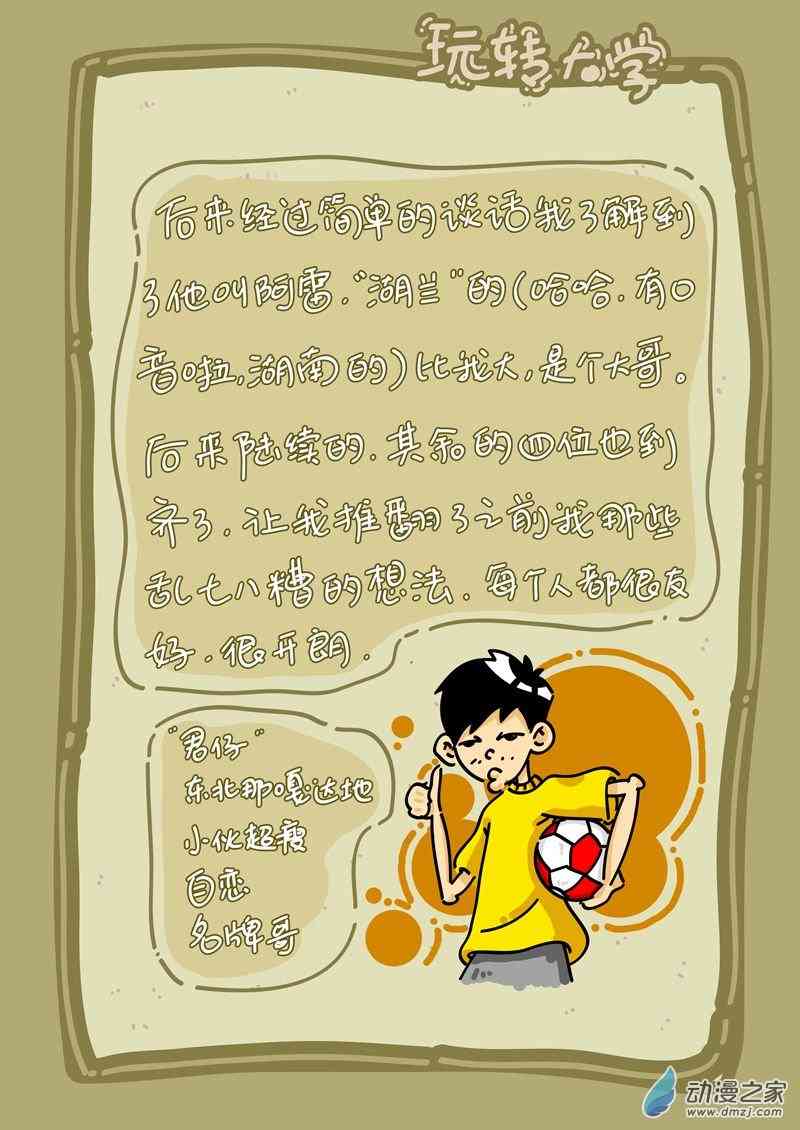 玩转大学
后来经过简单的谈话我了解到
了他叫阿雷.“湖兰”的(哈哈.有口
音啦,湖南的)比我大,是个大哥。
后来陆续的.其余的四位也到
齐了.让我推翻了之前我那些
乱七八糟的想法.每个人都很友
好.很开朗.
“君仔”
东北那嘎达地
小伙超瘦
自恋
名牌哥
动漫之家
www.dmzj.com